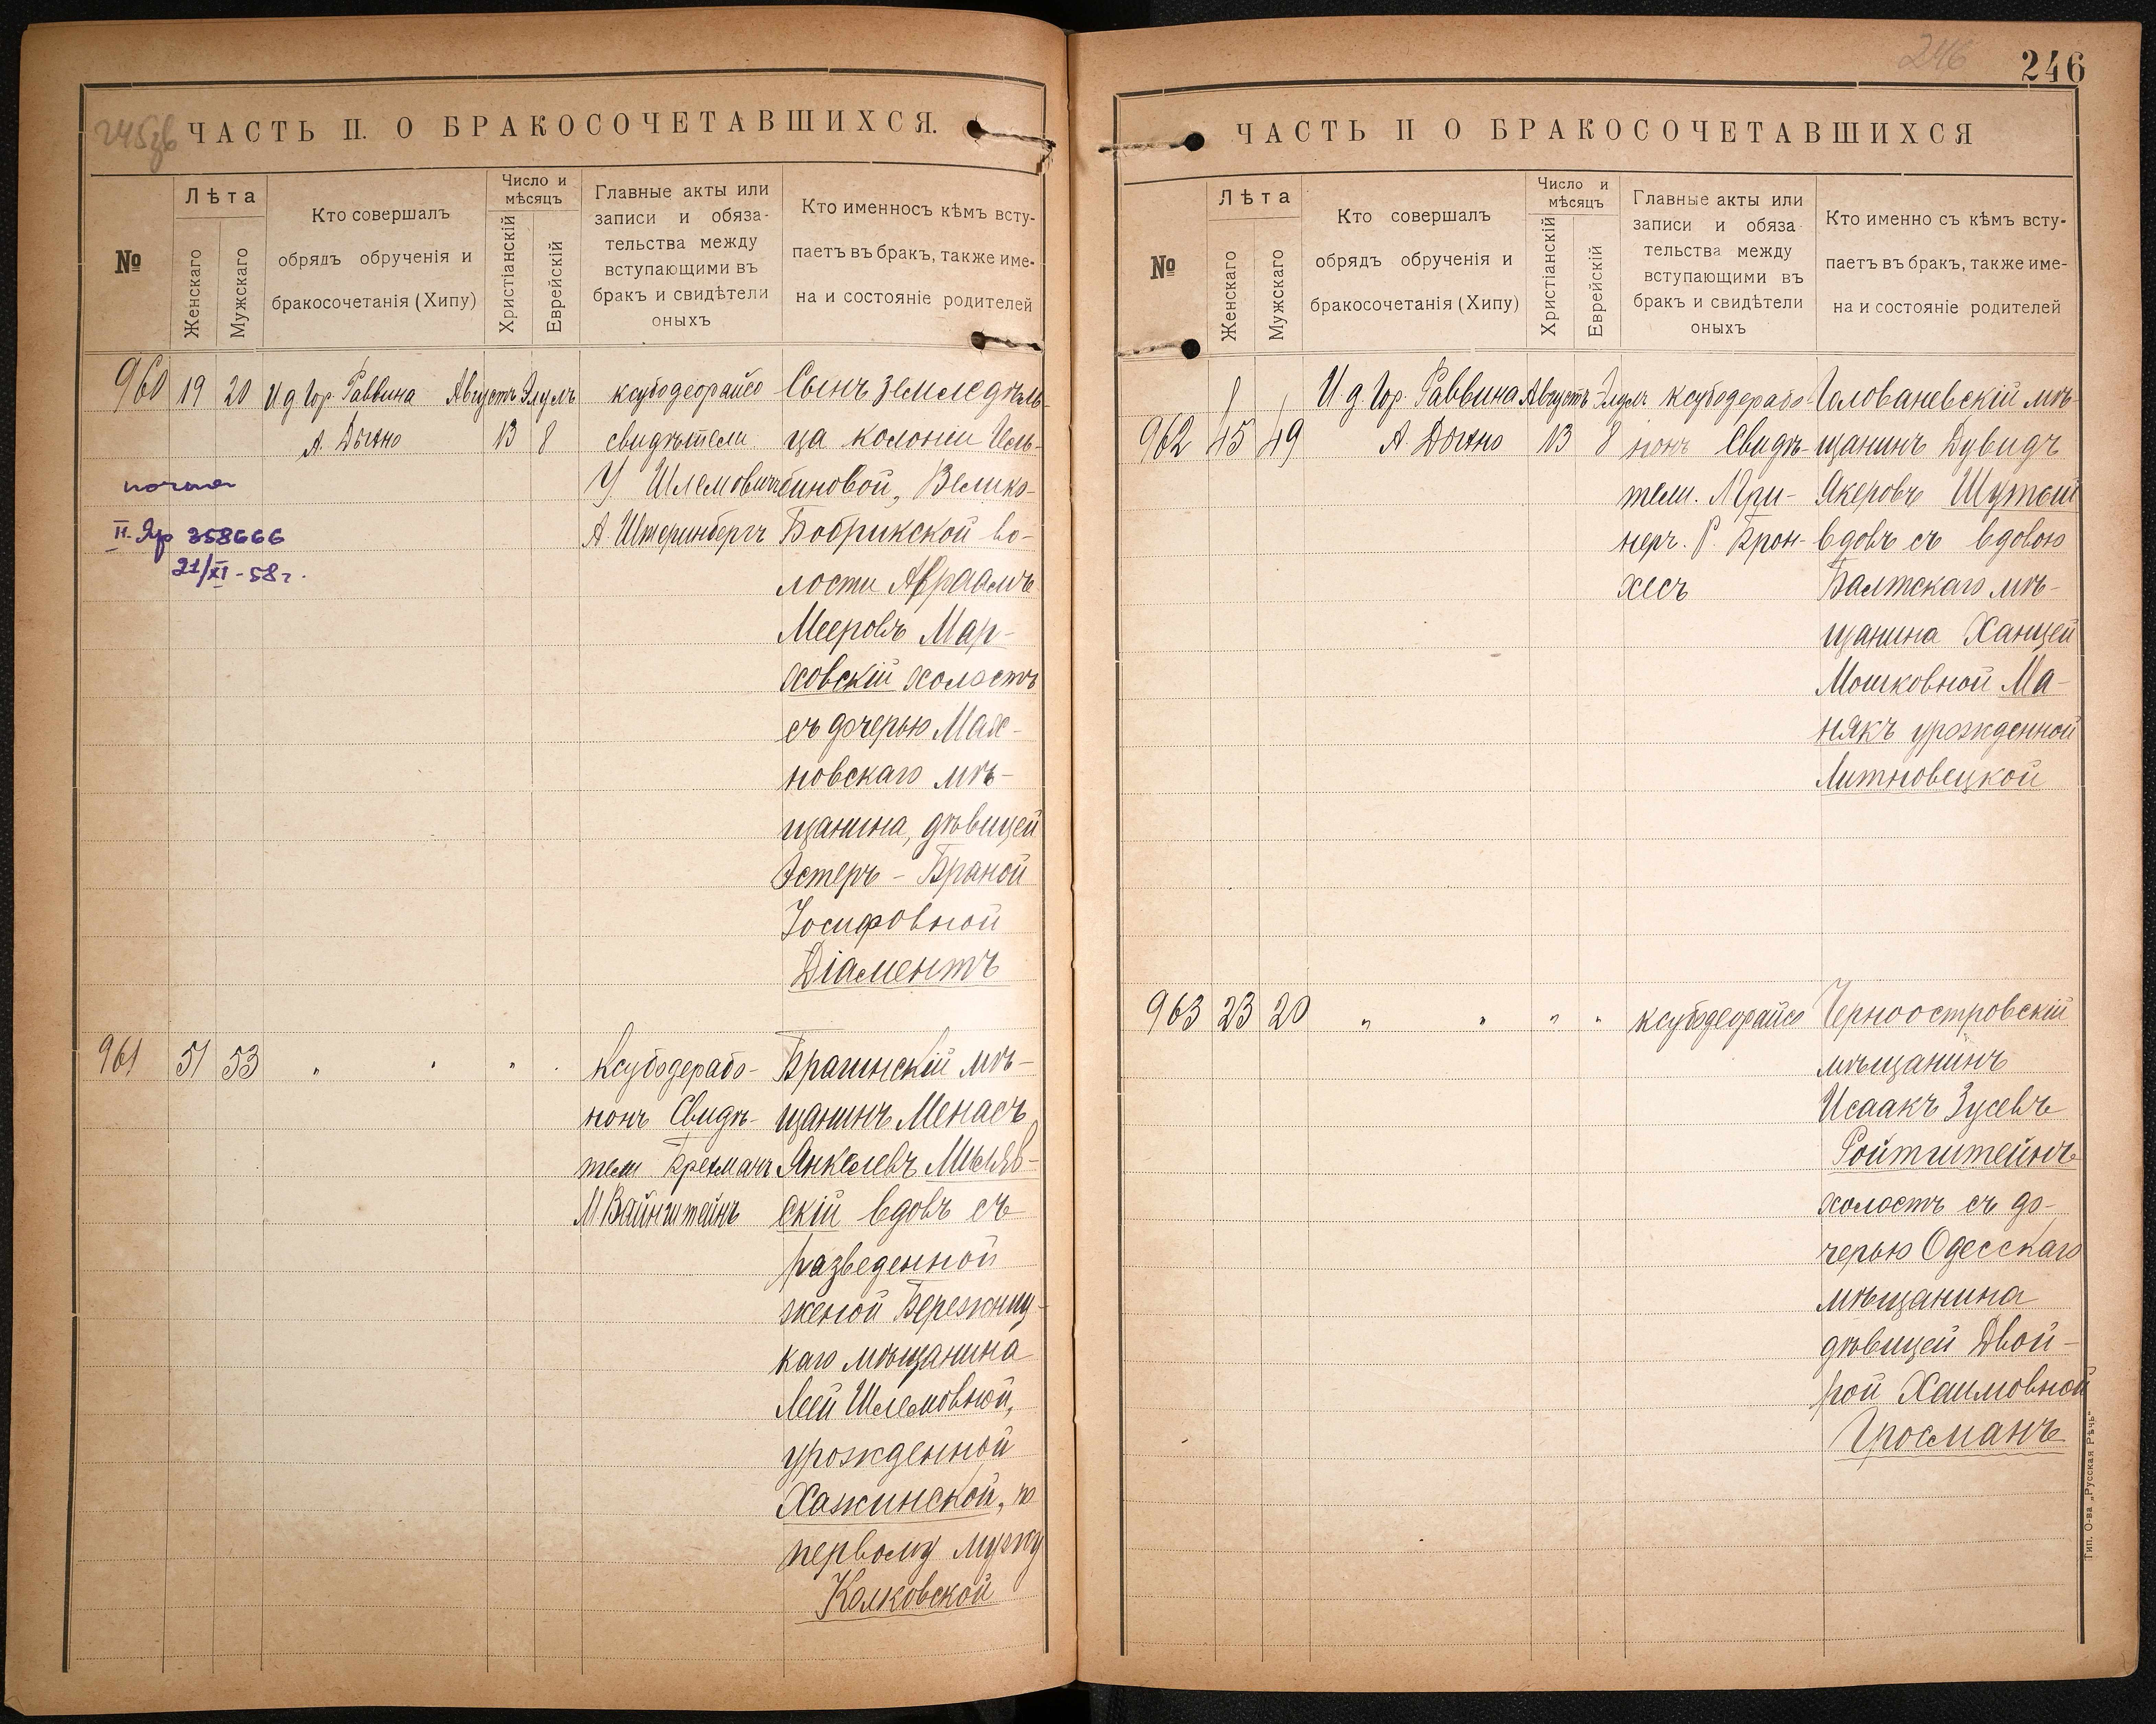 245 зв
ЧАСТЬ II. О БРАКОСОЧЕТАВШИХСЯ.
№
Лѣта
Женскаго
Мужскаго
Кто совершалъ
обрядъ обрученія и
бракосочетанія (Хипу)
Число и
мѣсяцъ
Христіанскій
Еврейскій
Главные акты или
записи и обяза-
тельства между
вступающими въ
бракъ и свидѣтели
оныхъ
Кто именносъ кѣмъ всту-
паетъ въ бракъ, также име-
на и состояніе родителей
960 19 20
И д Гор. Раввина
А. Дыхно
Августъ Элулъ
13 8
ксубодеорайсо
свидѣтели
У. Шлемовичъ
А. Штеринбергъ
Сынъ земледѣль-
ца колоніи
Велико-
Бобрикской во-
лости Авраамъ
Мееровъ Мар-
ховскій холостъ
съ дочерью Мах-
новскаго мѣ-
щанина, дѣвицей
Эстеръ - Браной
Іосифовной
Діаментъ
II-Яр 358666
21/XI-58г.
961 51 53 " " " "
Ксубодерабо-
нонъ Свидѣ-
тели
М Вайнштейнъ
Брагинскій мѣ-
щанинъ Менасъ
Янкелевъ Миляв-
скій вдовъ съ
разведенной
женой Бережниц-
каго мѣщанина
Леей Шлемовной,
урожденной
Хажинской, по
первому мужу
Колковской
246
246
ЧАСТЬ II О БРАКОСОЧЕТАВШИХСЯ
№
Лѣта
Женскаго
Мужскаго
Кто совершалъ
обрядъ обрученія и
бракосочетанія (Хипу)
Число и
мѣсяцъ
Христіанскій
Еврейскій
Главные акты или
записи и обяза
тельства между
вступающими въ
бракъ и свидѣтели
оныхъ
Кто именно съ кѣмъ всту-
паетъ въ бракъ, также име-
на и состояніе родителей
962 45 49
И д Гор. Раввина
А. Дыхно
Августъ Элулъ
13 8
ксубодерабо-
нонъ Свидѣ-
тели. М. Гри-
неръ. Р. Брон-
хесъ
Голованевскій мѣ-
щанинъ Дувидъ
Якеровъ Шутый
вдовъ съ вдовою
Балтскаго мѣ-
щанина Ханцей
Мошковной Ма-
някъ урожденной
Литновецкой
963 23 20 " " " "
ксубодеорайсо
Черноостровскій
мѣщанинъ
Исаакъ Зусевъ
Ройтштейнъ
холостъ съ до-
черью Одесскаго
мѣщанина
дѣвицей Двой-
рой Хаимовной
Гросманъ
Тип. О-ва „Русская Рѣчь"